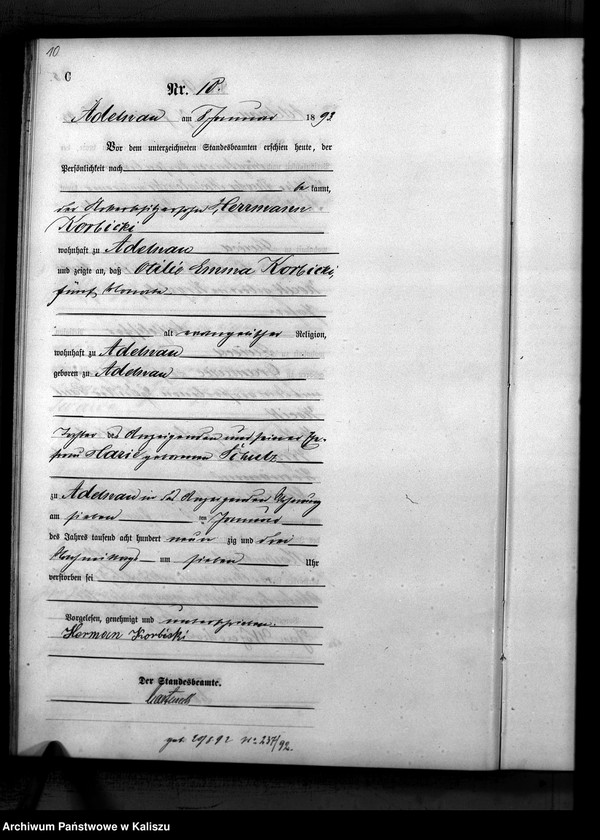 10
C
Nr. 10.
Adelnau am Januar 1893
Vor dem unterzeichneten Standesbeamten erschien heute, der
Persönlichkeit nach
be kannt,
der Herrmann
Korbicki
wohnhaft zu Adelnau
und zeigte an, daß Otilie Emma Korbicki,
fünf Monate
alt evangelischer Religion,
wohnhaft zu Adelnau
geboren zu Adelnau
Tochter des Anzeigenden und seiner Ehe-
frau Marie geborenen Schulz
zu Adelnau in des Anzeigenden Wohnung
am sieben ten Januar
des Jahres tausend acht hundert neun zig und drei
Nachmittags um sieben Uhr
verstorben sei
Vorgelesen, genehmigt und unterschrieben.
Herman Korbicki
Der Standesbeamte.
geb. 29/8 92 No. 237/92.
Archiwum Państwowe w Kaliszu